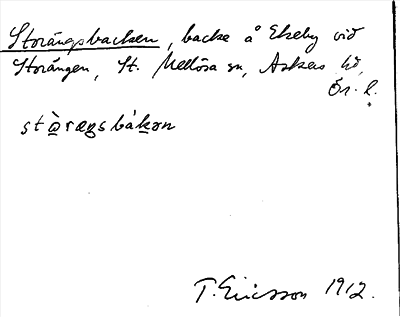 Storängsbacken, backe å Ekeby vid
Storängen, St. Mellösa sn, Askers hd,
Ör. l.
stɷ̀ræŋsbàkən
T. Ericsson 1912.